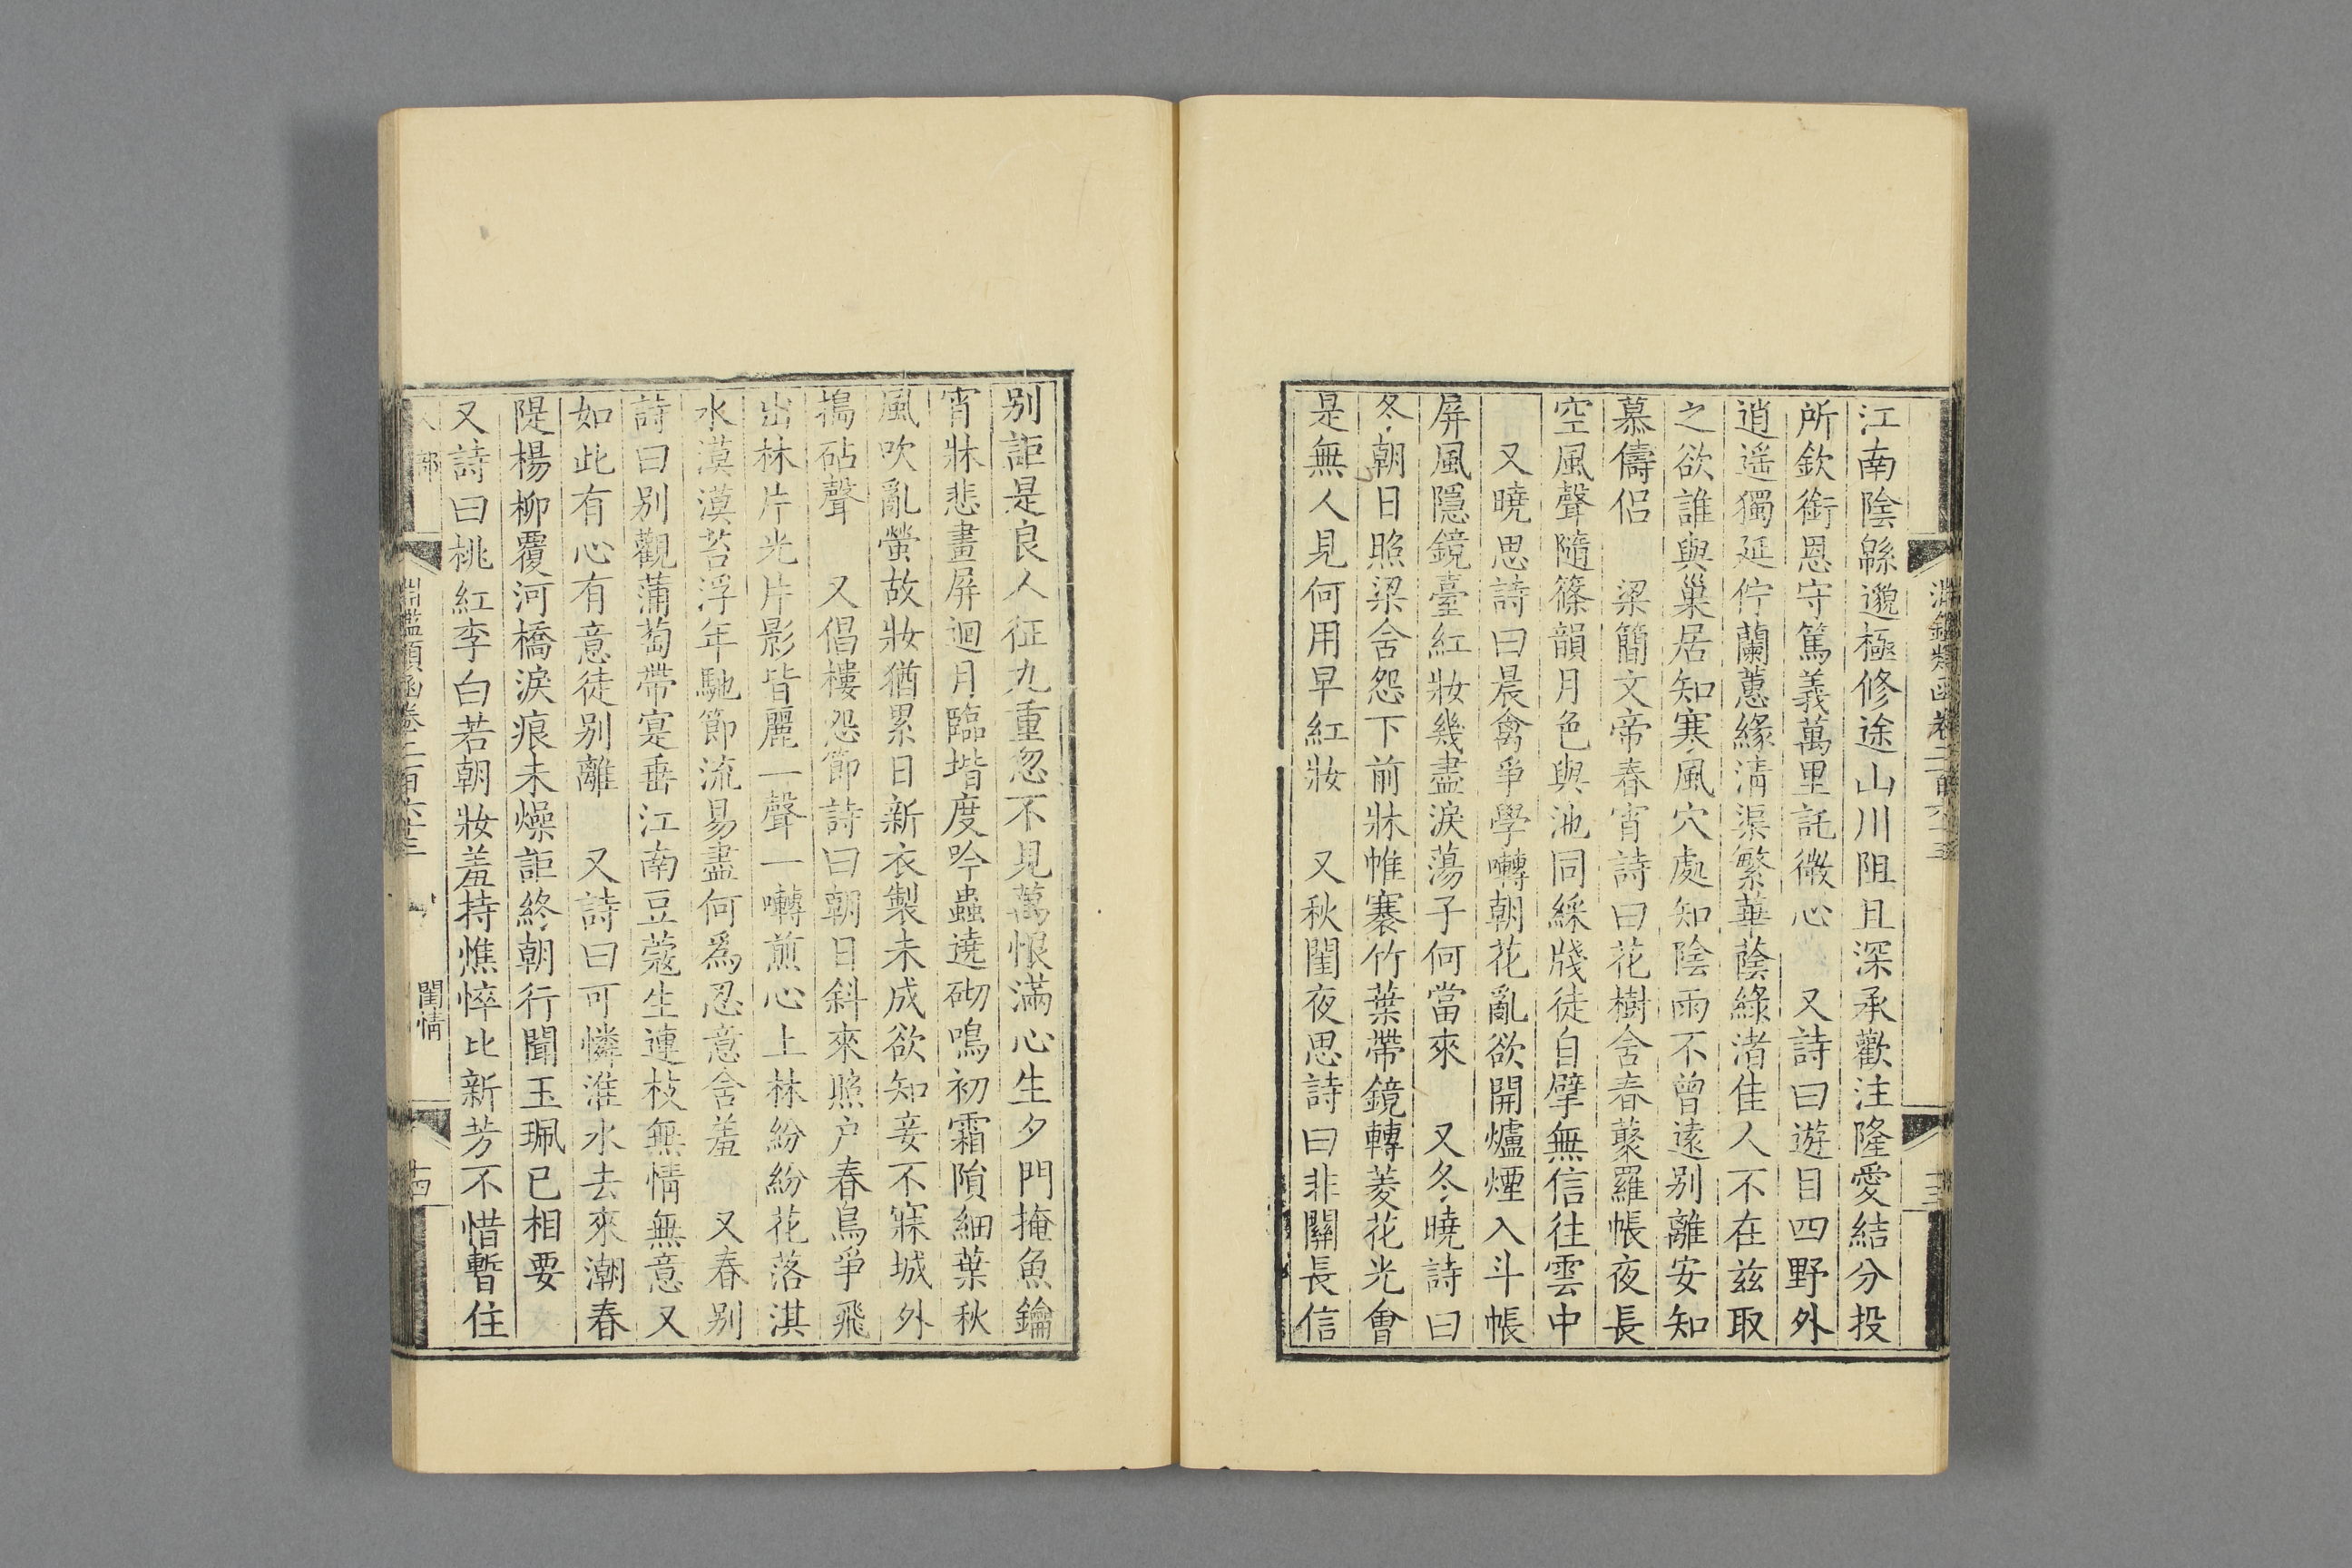 淵鑑類函卷二百六十三
十三
江南陰緜邈極修途山川阻且深承歡注隆愛結分投
所欽銜恩守篤義萬里託微心　又詩曰遊目四野外
逍遙獨延佇蘭蕙緣清渠繁華蔭綠渚佳人不在茲取
之欲誰與巢居知寒風穴處知陰雨不曾遠别離安知
慕儔侣　梁簡文帝春宵詩曰花樹舍春藂羅帳夜長
空風聲隨篠韻月色與池同綵牋徒自擘無信往雲中
又曉思詩曰晨禽爭學囀朝花亂欲開爐煙入斗帳
屏風隱鏡臺紅妝幾盡淚蕩子何當來　又冬曉詩曰
冬朝日照梁舍怨下前牀帷褰竹葉帶鏡轉菱花光會
是無人見何用早紅妝　又秋閨夜思詩曰非關長信
别詎是良人征九重忽不見萬恨滿心生夕門掩魚鑰
宵牀悲畫屏迴月臨堦度吟蟲遶砌鳴初霜隕細葉秋
風吹亂螢故妝猶累日新衣製未成欲知妾不寐城外
搗砧聲　又倡樓怨節詩曰朝日斜來照户春烏爭飛
出林片光片影皆麗一聲一囀煎心上林紛紛花落淇
水漠漠苔浮年馳節流易盡何爲忍意舍羞　又春别
詩曰别觀蒲萄帶寔垂江南豆蔻生連枝無情無意又
如此有心有意徒别離　又詩曰可憐淮水去來潮春
隄楊柳覆河橋淚痕未燥詎終朝行聞玉珮已相要
又詩曰桃紅李白若朝妝羞持憔悴比新芳不惜暫住
人部　淵鑑類函卷二百六十三　閨情
十四